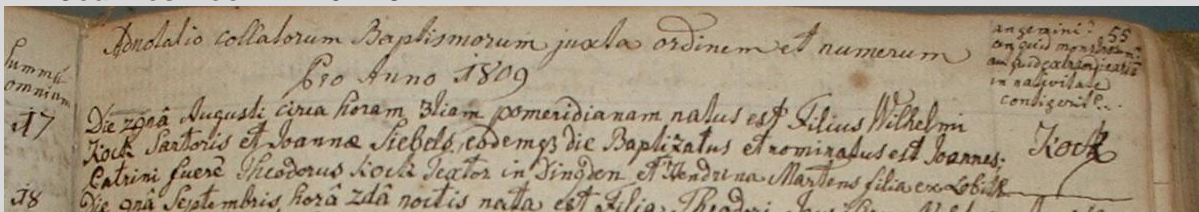 Adnotatio collatorum Baptismorum juxta ordinem et numerum
Pro Anno 1809
an gemini? 55
an quid monstrosum?
aut quid extraordinarii
in nativitate
contigerit?..
Summa
omnium
17
Die 29nâ Augusti circa horam 3tiam pomeridianam natus est Filius Wilhelmi
Kock Sartoris et Joannæ Siebels, eodemq3 die Baptizatus et nominatus est Joannes.
Kock
Patrini fuerē Theodorus Kock Textor in Dingden et Hendrina Martens filia ex Lobith
18
Die 9nâ Septembris horâ 2dâ noctis nata est Filia Theodori